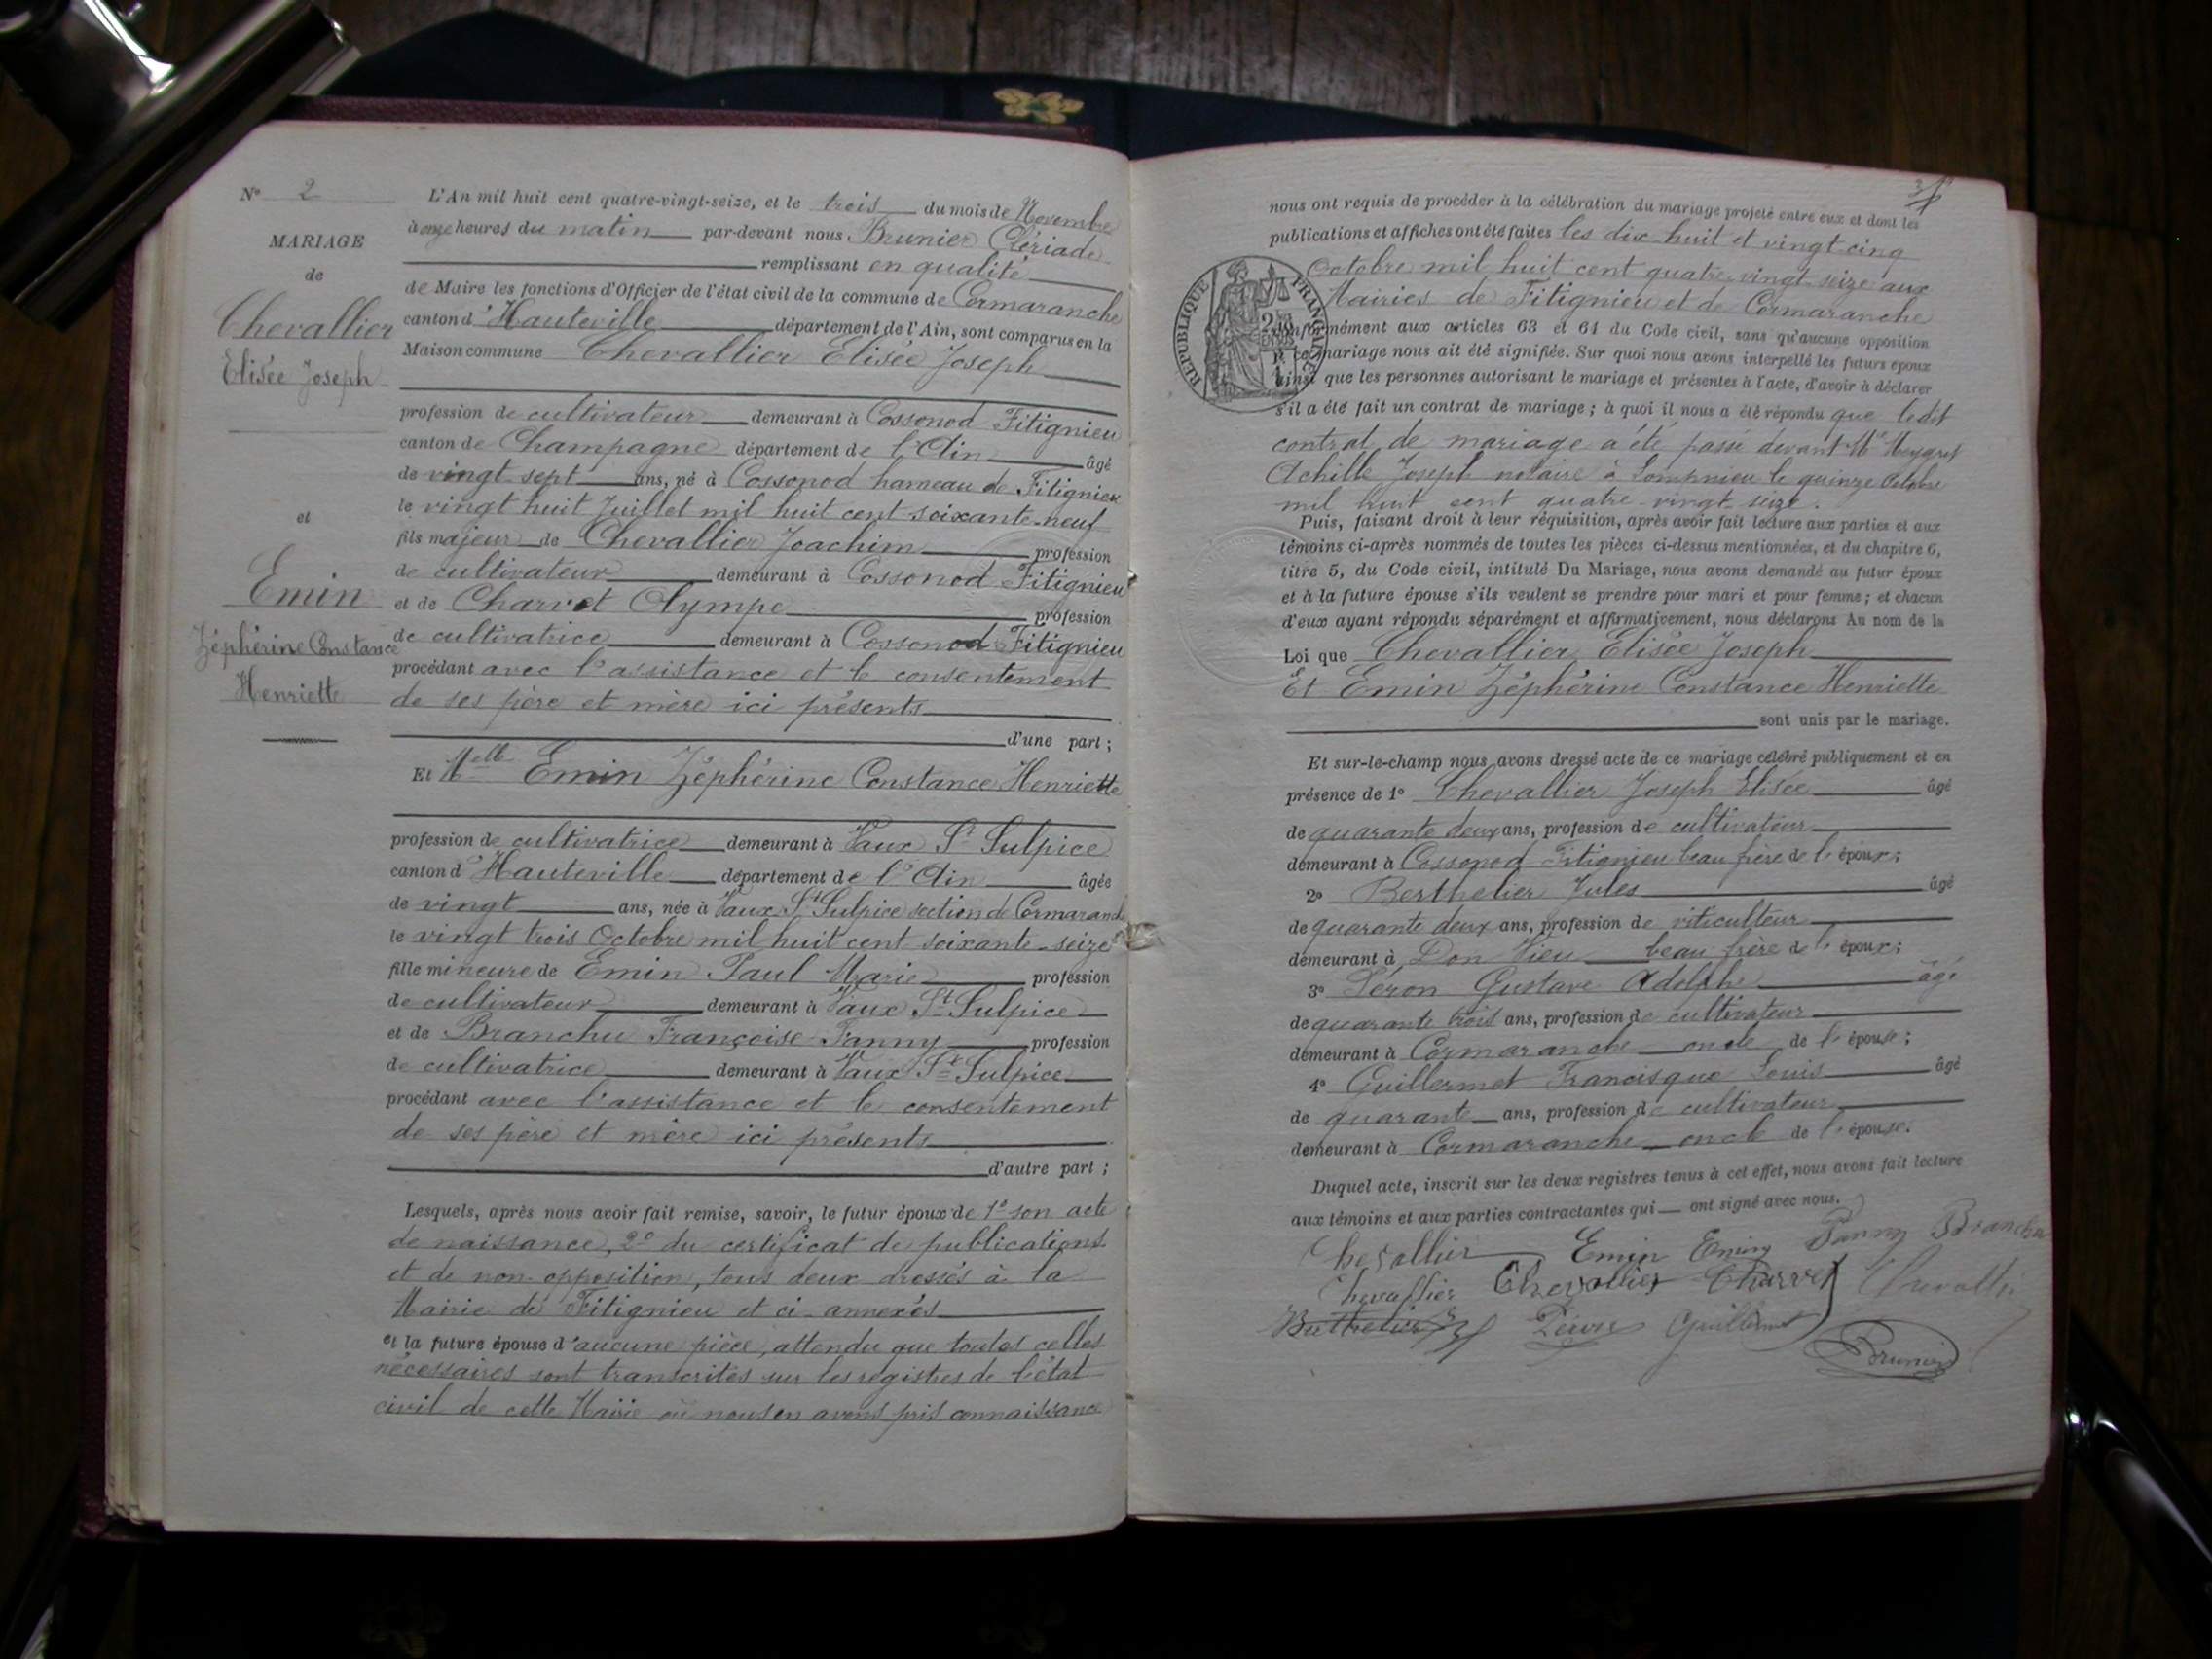 N° 2
MARIAGE
de
Chevallier
Elisée Joseph
et
Emin
Zéphérine Constance
Henriette
L'An mil huit cent quatre-vingt-seize, et le trois du mois de Novembre
à onze heures du matin par-devant nous Brunier Clériade
remplissant en qualité
de Maire les fonctions d'Officier de l'état civil de la commune de Cormaranche
canton d'Hauteville département de l'Ain, sont comparus en la
Maison commune Chevallier Elisée Joseph
profession de cultivateur demeurant à Cossonod Fitignieu
canton de Champagne département de l'Ain âgé
de vingt sept ans, né à Cossonod hameau de Fitignieu
le vingt huit Juillet mil huit cent soixante-neuf
fils majeur de Chevallier Joachim profession
de cultivateur demeurant à Cossonod Fitignieu
et de Charvet Olympe profession
de cultivatrice demeurant à Cossonod Fitignieu
procédant avec l'assistance et le consentement
de ses père et mère ici présents
d'une part ;
Et Melle Emin Zéphérine Constance Henriette
profession de cultivatrice demeurant à Vaux St Sulpice
canton d'Hauteville département de l'Ain âgée
de vingt ans, née à Vaux St Sulpice section de Cormaranche
le vingt trois Octobre mil huit cent soixante-seize
fille mineure de Emin Paul Marie profession
de cultivateur demeurant à Vaux St Sulpice
et de Branchu Françoise Fanny profession
de cultivatrice demeurant à Vaux St Sulpice
procédant avec l'assistance et le consentement
de ses père et mère ici présents
d'autre part ;
Lesquels, après nous avoir fait remise, savoir, le futur époux de 1° son acte
de naissance, 2° du certificat de publications
et de non-opposition, tous deux dressés à la
Mairie de Fitignieu et ci-annexés
et la future épouse d'aucune pièce, attendu que toutes celles
nécessaires sont transcrites sur les registres de l'état
civil de cette Mairie où nous en avons pris connaissance
nous ont requis de procéder à la célébration du mariage projeté entre eux et dont les
publications et affiches ont été faites les dix-huit et vingt cinq
Octobre mil huit cent quatre-vingt-seize aux
Mairies de Fitignieu et de Cormaranche
RÉPUBLIQUE FRANÇAISE
conformément aux articles 63 et 64 du Code civil, sans qu'aucune opposition
à ce mariage nous ait été signifiée. Sur quoi nous avons interpellé les futurs époux
ainsi que les personnes autorisant le mariage et présentes à l'acte, d'avoir à déclarer
s'il a été fait un contrat de mariage ; à quoi il nous a été répondu que ledit
contrat de mariage a été passé devant Me Meygret
Achille Joseph notaire à Sompnieu le quinze Octobre
mil huit cent quatre-vingt-seize.
Puis, faisant droit à leur réquisition, après avoir fait lecture aux parties et aux
témoins ci-après nommés de toutes les pièces ci-dessus mentionnées, et du chapitre 6,
titre 5, du Code civil, intitulé Du Mariage, nous avons demandé au futur époux
et à la future épouse s'ils veulent se prendre pour mari et pour femme ; et chacun
d'eux ayant répondu séparément et affirmativement, nous déclarons Au nom de la
Loi que Chevallier Elisée Joseph
Et Emin Zéphérine Constance Henriette
sont unis par le mariage.
Et sur-le-champ nous avons dressé acte de ce mariage célébré publiquement et en
présence de 1° Chevallier Joseph Elisée âgé
de quarante deux ans, profession de cultivateur
demeurant à Cossonod Fitignieu beau frère de l'époux ;
2° Berthelier Jules âgé
de quarante deux ans, profession de viticulteur
demeurant à Don Vieu beau frère de l'époux ;
3° Péron Gustave Adolphe âgé
de quarante trois ans, profession de cultivateur
demeurant à Cormaranche oncle de l'épouse ;
4° Guillermet Francisque Louis âgé
de quarante ans, profession de cultivateur
demeurant à Cormaranche oncle de l'épouse.
Duquel acte, inscrit sur les deux registres tenus à cet effet, nous avons fait lecture
aux témoins et aux parties contractantes qui ont signé avec nous.
Chevallier Emin Emin Fanny Branchu
Chevallier Chevallier Charvet Chevallier
Berthelier Péron Guillermet
Brunier